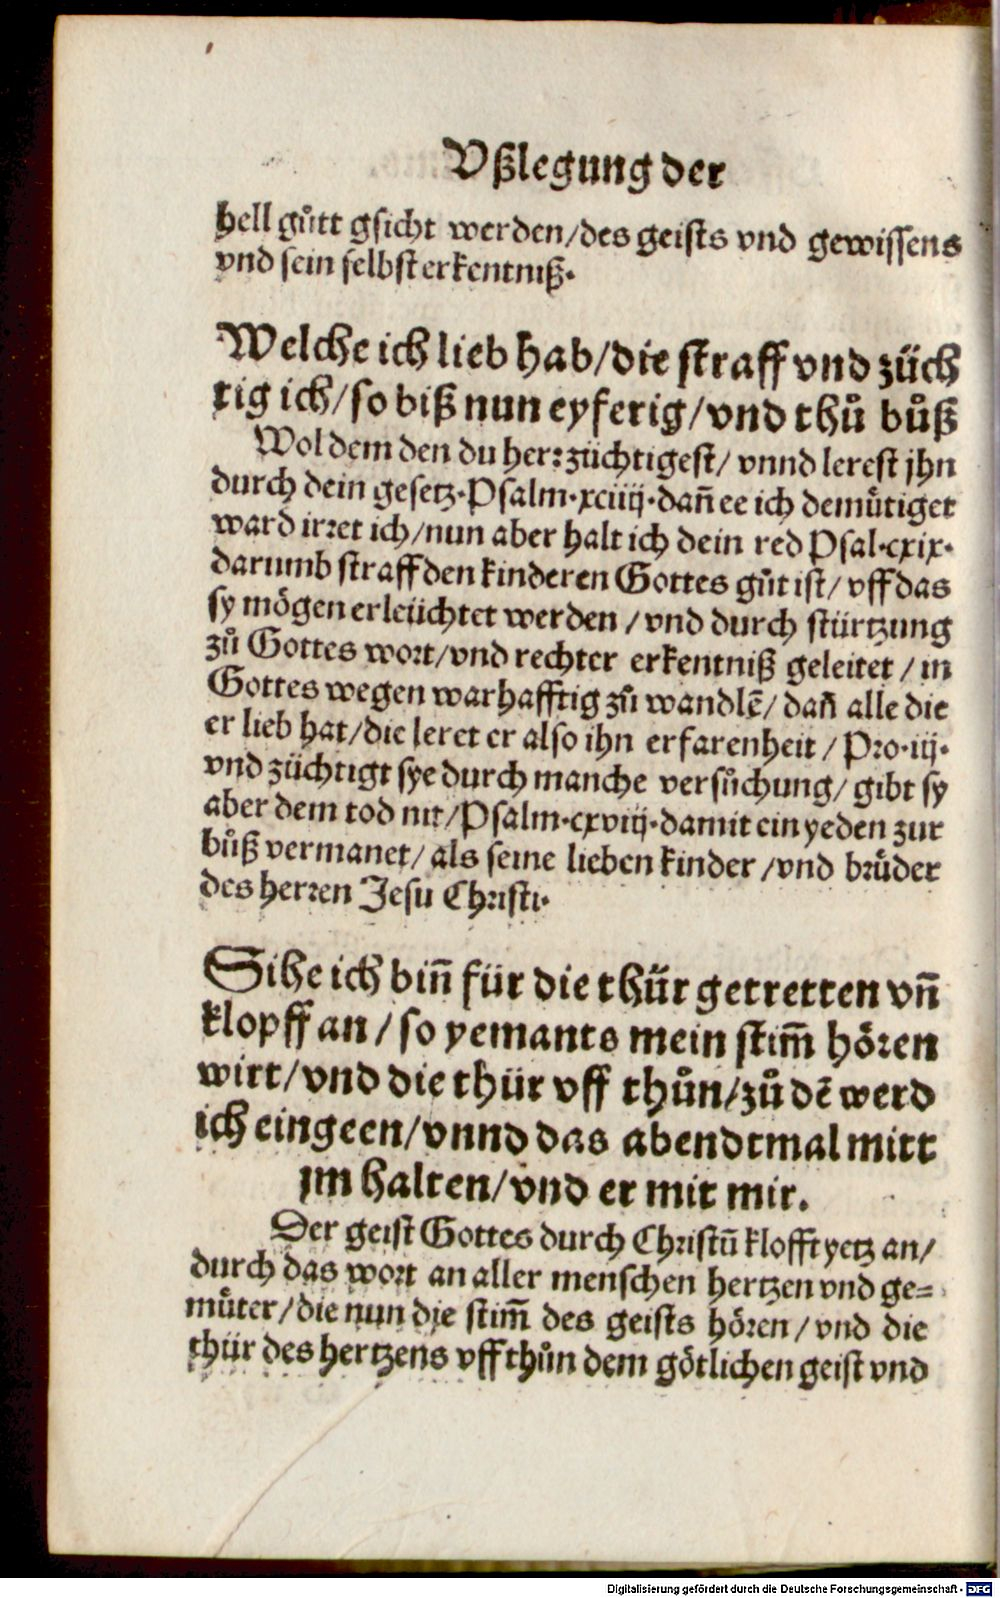 Vßlegung der
hell gůtt gsicht werden/des geists vnd gewissens
vnd sein selbst erkentniß.
Welche ich lieb hab/die straff vnd züch
tig ich/so biß nun eyferig/vnd thů bůß
Wol dem den du herr züchtigest/ vnnd lerest jhn
durch dein gesetz.Psalm.xciiij.dañ ee ich demůtiget
ward irret ich/nun aber halt ich dein red Psal.cxix.
darumb straff den kinderen Gottes gůt ist/ vff das
sy mögen erleüchtet werden / vnd durch stürtzung
zů Gottes wort/vnd rechter erkentniß geleitet / in
Gottes wegen warhafftig zů wandlē/ dañ alle die
er lieb hat/die leret er also ihn erfarenheit / Pro.iij.
vnd züchtigt sye durch manche versůchung/ gibt sy
aber dem tod nit/Psalm.cxviij.damit ein yeden zur
bůß vermanet/ als seine lieben kinder /vnd brůder
des herren Jesu Christi.
Sihe ich biñ für die thür getretten vñ
klopff an / so yemants mein stim̃ hören
wirt/vnd die thür vff thůn/zů dē werd
ich eingeen/vnnd das abendtmal mitt
jm halten/vnd er mit mir.
Der geist Gottes durch Christū klofft yetz an/
durch das wort an aller menschen hertzen vnd ge=
můter/die nun die stim̃ des geists hören/vnd die
thür des hertzens vff thůn dem götlichen geist vnd
Digitalisierung gefördert durch die Deutsche Forschungsgemeinschaft - DFG